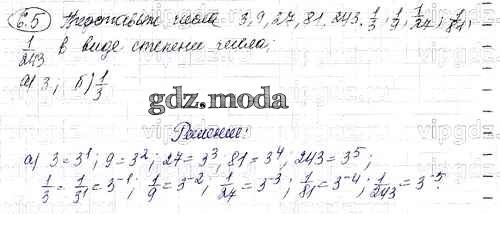 6.5 Представьте числа 3, 9, 27, 81, 243, 1/3; 1/9; 1/27; 1/81;
1/243 в виде степени числа:
а) 3; б) 1/3
gdz.moda
Решение:
а) 3 = 3^1; 9 = 3^2; 27 = 3^3, 81 = 3^4, 243 = 3^5;
1/3 = 1/3^1 = 3^-1; 1/9 = 3^-2; 1/27 = 3^-3; 1/81 = 3^-4; 1/243 = 3^-5.